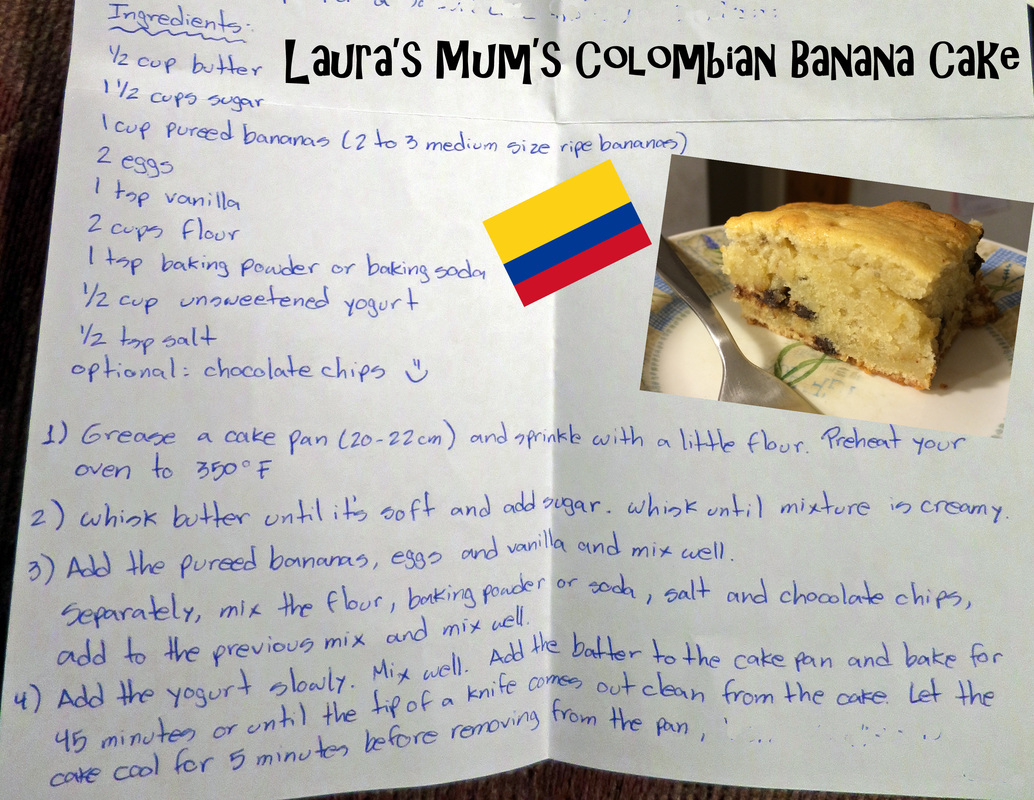 Ingredients:
Laura's Mum's Colombian Banana Cake
1/2 cup butter
1 1/2 cups sugar
1 cup pureed bananas (2 to 3 medium size ripe bananas)
2 eggs
1 tsp vanilla
2 cups flour
1 tsp baking powder or baking soda
1/2 cup unsweetened yogurt
1/2 tsp salt
optional: chocolate chips
1) Grease a cake pan (20-22cm) and sprinkle with a little flour. Preheat your
oven to 350°F
2) Whisk butter until it's soft and add sugar. Whisk until mixture is creamy.
3) Add the pureed bananas, eggs and vanilla and mix well.
Separately, mix the flour, baking powder or soda, salt and chocolate chips,
add to the previous mix and mix well.
4) Add the yogurt slowly. Mix well. Add the batter to the cake pan and bake for
45 minutes or until the tip of a knife comes out clean from the cake. Let the
cake cool for 5 minutes before removing from the pan,